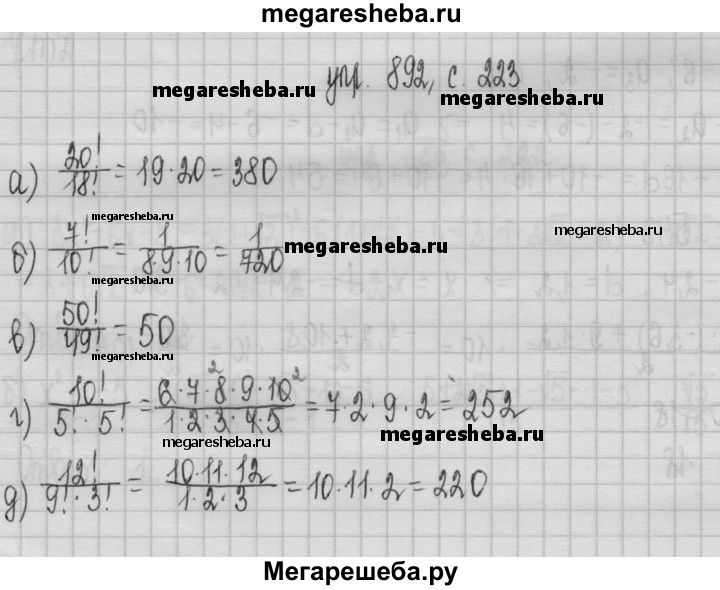 megaresheba.ru
упр. 892, с. 223
megaresheba.ru megaresheba.ru
а) 20!/18! = 19·20 = 380
megaresheba.ru
megaresheba.ru
б) 7!/10! = 1/8·9·10 = 1/720
megaresheba.ru
megaresheba.ru
в) 50!/49! = 50
megaresheba.ru
г) 10!/5!·5! = 6·7·8²·9·10²/1·2·3·4·5 = 7·2·9·2 = 252
megaresheba.ru
megaresheba.ru
д) 12!/9!·3! = 10·11·12/1·2·3 = 10·11·2 = 220
megaresheba.ru
Мегарешеба.ру